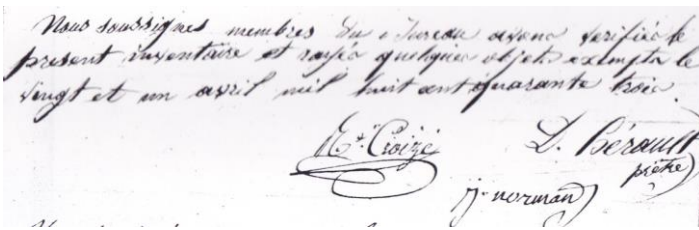 Nous soussignés membres du Bureau avons verifiés le
present inventaire et rayés quelques objets exempts le
vingt et un avril mil huit cent quarante trois.
Mt. Croizé D. Bérault
prêtre
j. norman